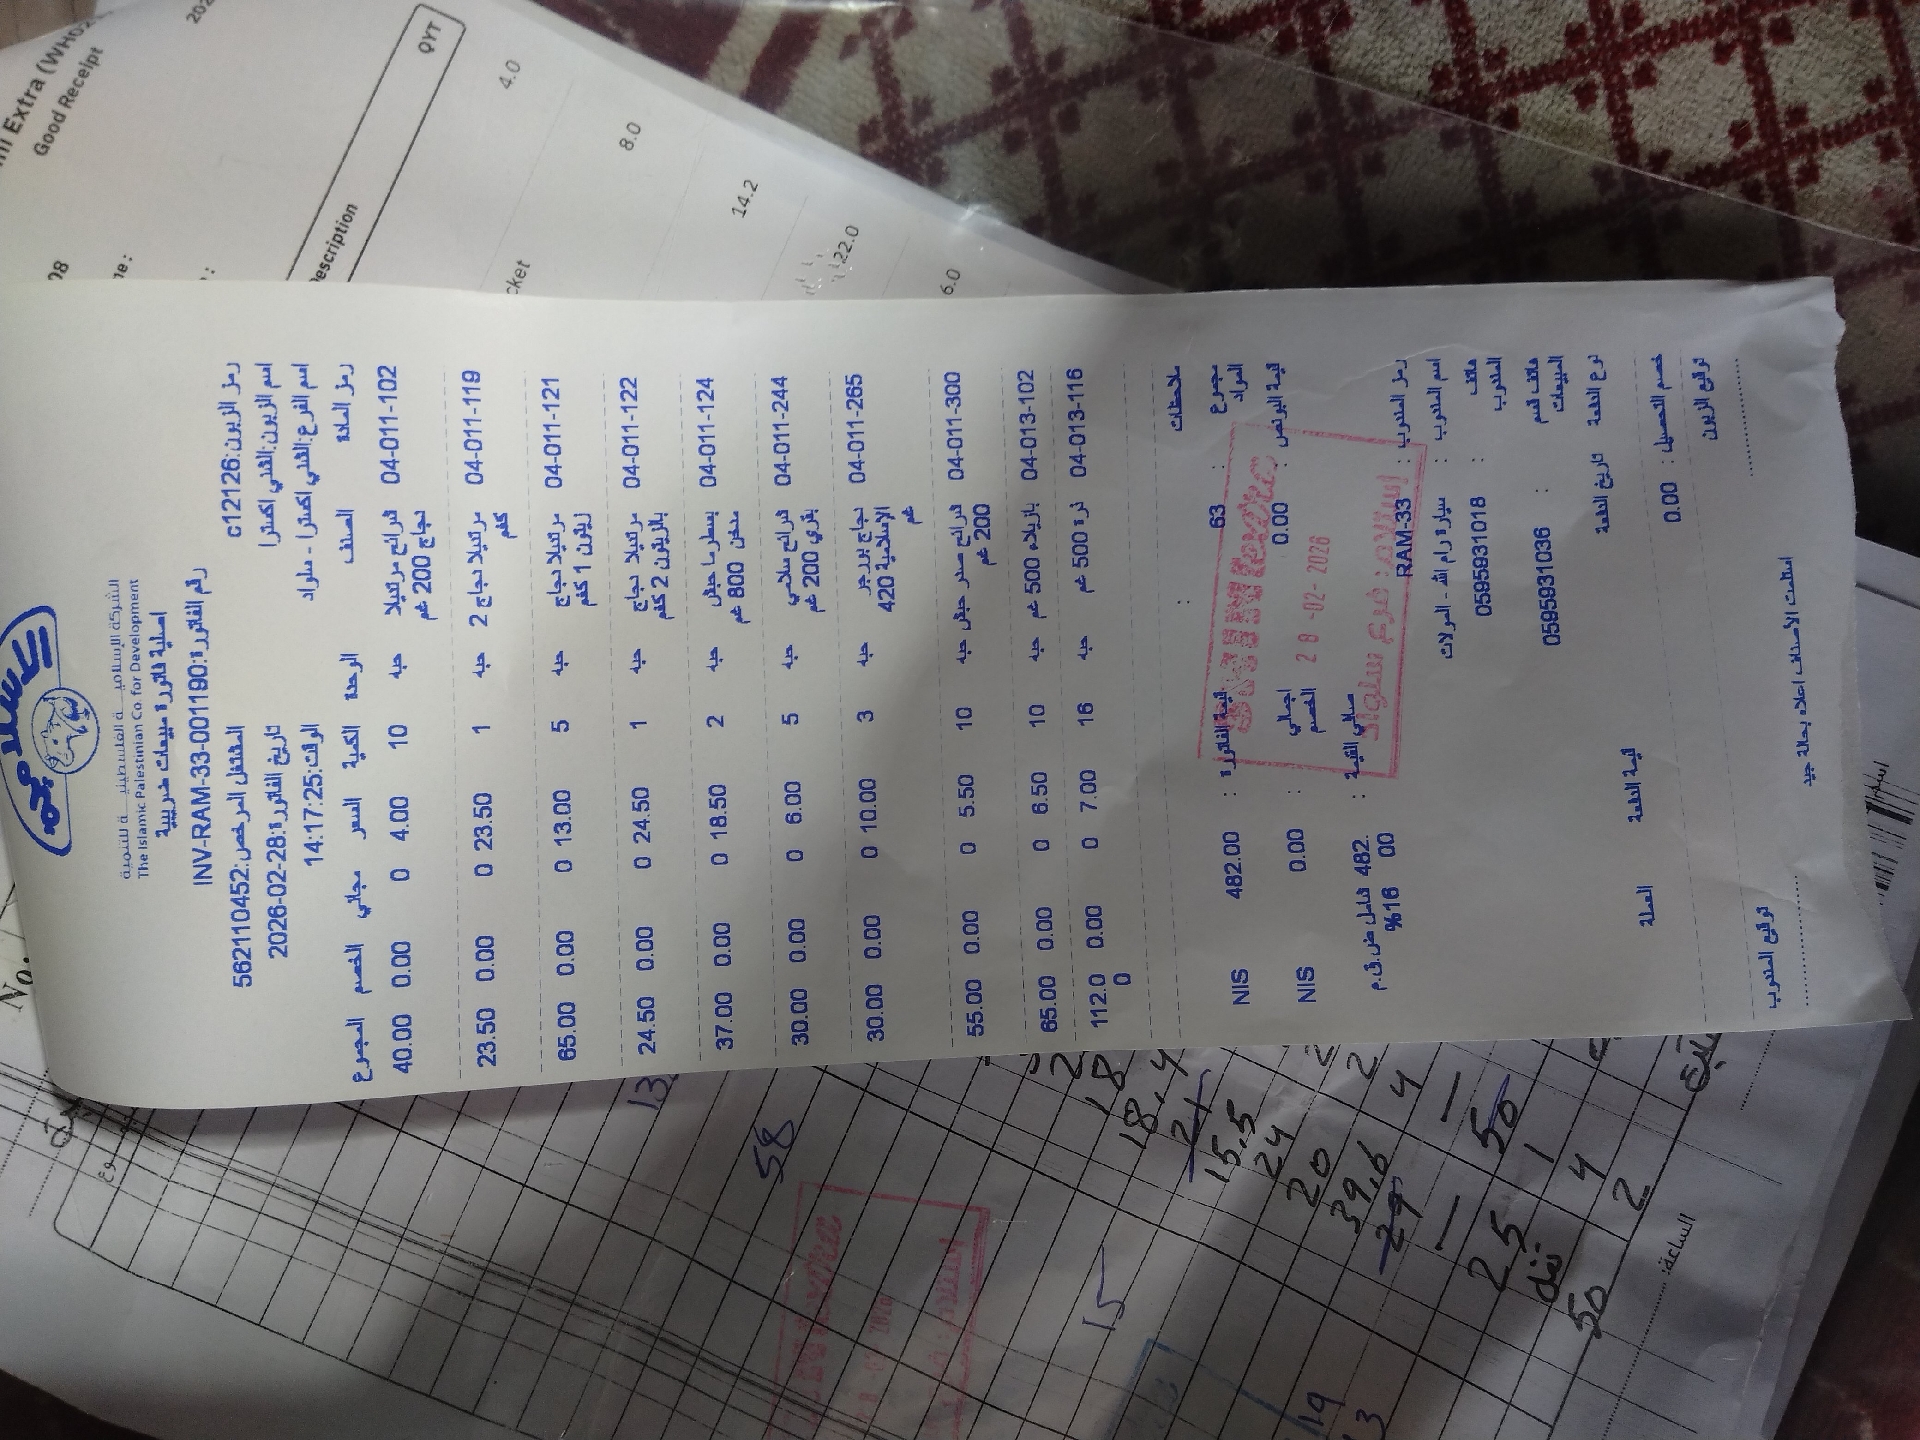 الإسلامية
الشركة الإسلامية الفلسطينية للتنمية
The Islamic Palestinian Co. for Development
اصلية فاتورة مبيعات ضريبية
رقم الفاتورة:INV-RAM-33-001190
رمز الزبون:c12126 المشتغل المرخص:562110452
اسم الزبون:الشني اكسترا تاريخ الفاتورة:2026-02-28
اسم الفرع:الشني اكسترا - سلواد الوقت:14:17:25
رمز المادة الصنف الوحدة الكمية السعر مجاني الخصم المجموع
04-011-102 شرائح مرتديلا حبه 10 4.00 0 0.00 40.00
دجاج 200 غم
04-011-119 مرتديلا دجاج 2 حبه 1 23.50 0 0.00 23.50
كغم
04-011-121 مرتديلا دجاج حبه 5 13.00 0 0.00 65.00
زيتون 1 كغم
04-011-122 مرتديلا دجاج حبه 1 24.50 0 0.00 24.50
بالزيتون 2 كغم
04-011-124 بسطرما حبش حبه 2 18.50 0 0.00 37.00
مدخن 800 غم
04-011-244 شرائح سلامي حبه 5 6.00 0 0.00 30.00
بقري 200 غم
04-011-265 دجاج بررجر حبه 3 10.00 0 0.00 30.00
الإسلامية 420
غم
04-011-300 شرائح صدر حبش حبه 10 5.50 0 0.00 55.00
200 غم
04-013-102 بازيلاء 500 غم حبه 10 6.50 0 0.00 65.00
04-013-116 ذرة 500 غم حبه 16 7.00 0 0.00 112.0
0
ملاحظات :
مجموع المواد : 63 قيمة الفاتورة : 482.00 NIS
قيمة البونص : 0.00 اجمالي الخصم : 0.00 NIS
28-02-2026
استلام: فرع سلواد
صافي القيمة : 482.00 شامل ض.ق.م %16
رمز المندوب : RAM-33
اسم المندوب : سيارة رام الله - المولات
هاتف المندوب : 0595931018
هاتف قسم المبيعات : 0595931036
نوع الدفعة تاريخ الدفعة قيمة الدفعة العملة
خصم التحصيل : 0.00
توقيع الزبون توقيع المندوب
استلمت الأصناف اعلاه بحالة جيد
Good Receipt
QYT
4.0
8.0
14.2
22.0
6.0
No.
58
15
18
18,4
21
15.5
24
20
39,6
29
25
50
50
2
4
الساعة: